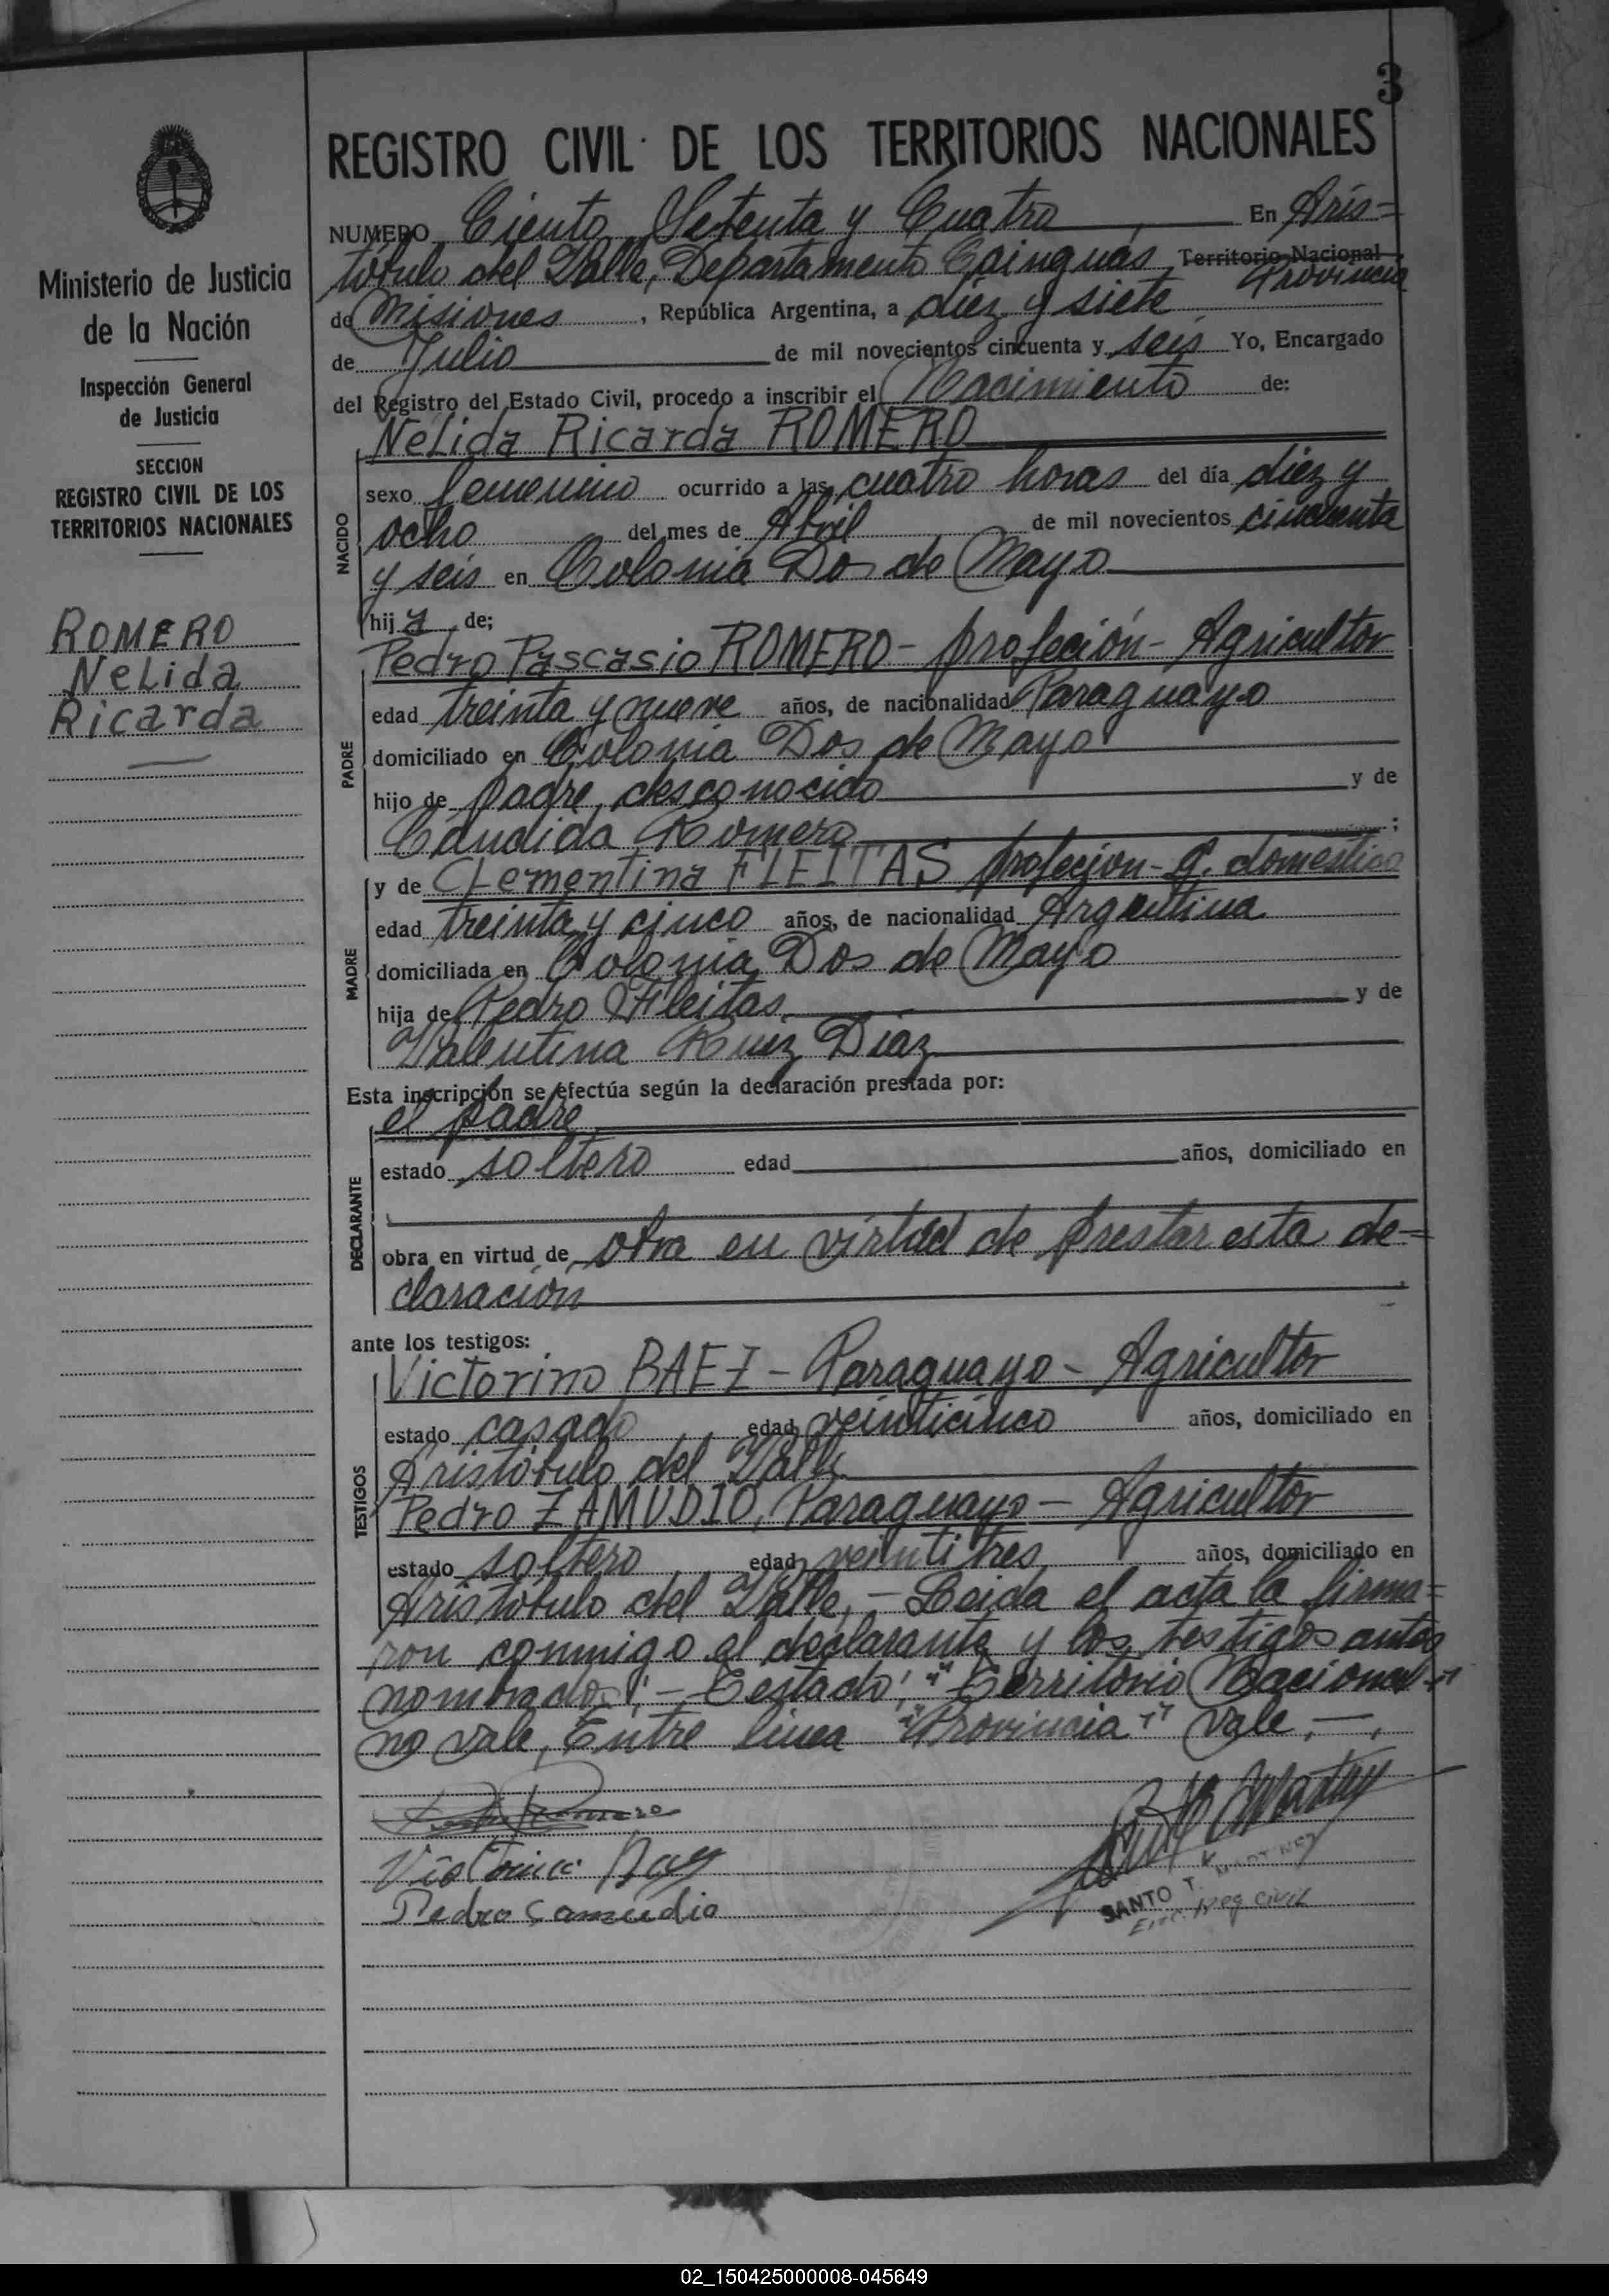 3
REGISTRO CIVIL DE LOS TERRITORIOS NACIONALES
Ministerio de Justicia
de la Nación
Inspección General
de Justicia
SECCION
REGISTRO CIVIL DE LOS
TERRITORIOS NACIONALES
ROMERO
NeLida
Ricarda
NUMERO Ciento Setenta y Cuatro En Aris=
tóbulo del Valle, Departamento Cainguás Territorio Nacional Provincia
de Misiones, República Argentina, a diez y siete
de Julio de mil novecientos cincuenta y seis Yo, Encargado
del Registro del Estado Civil, procedo a inscribir el Nacimiento de:
NACIDO
NeLida Ricarda ROMERO
sexo femenino ocurrido a las cuatro horas del día diez y
ocho del mes de Abril de mil novecientos cincuenta
y seis en Colonia Dos de Mayo
hija de;
PADRE
Pedro Pascasio ROMERO - profeción - Agricultor
edad treinta y nueve años, de nacionalidad Paraguayo
domiciliado en Colonia Dos de Mayo
hijo de padre desconocido y de
Cándida Romero ;
MADRE
y de CLementina FLEITAS profecion - q. domestico
edad treinta y cinco años, de nacionalidad Argentina
domiciliada en Colonia Dos de Mayo
hija de Pedro Fleitas y de
Valentina Ruiz Díaz
Esta inscripción se efectúa según la declaración prestada por:
DECLARANTE
el padre
estado soltero edad años, domiciliado en
obra en virtud de otra en virtud de prestar esta de=
claración
ante los testigos:
TESTIGOS
Victorino BAEZ - Paraguayo - Agricultor
estado casado edad veinticinco años, domiciliado en
Aristóbulo del Valle
Pedro ZAMUDIO, Paraguayo - Agricultor
estado soltero edad veintitres años, domiciliado en
Aristóbulo del Valle, - Leida el acta la firma=
ron conmigo el declarante y los testigos antes
nombrados, - Testado: "Territorio Nacional"
no vale, Entre linea "Provincia" vale, -,
Romero
Victorino Baez
Pedro Samudio
SANTO T. MARTINEZ
Enc. Reg Civil
02_150425000008-045649